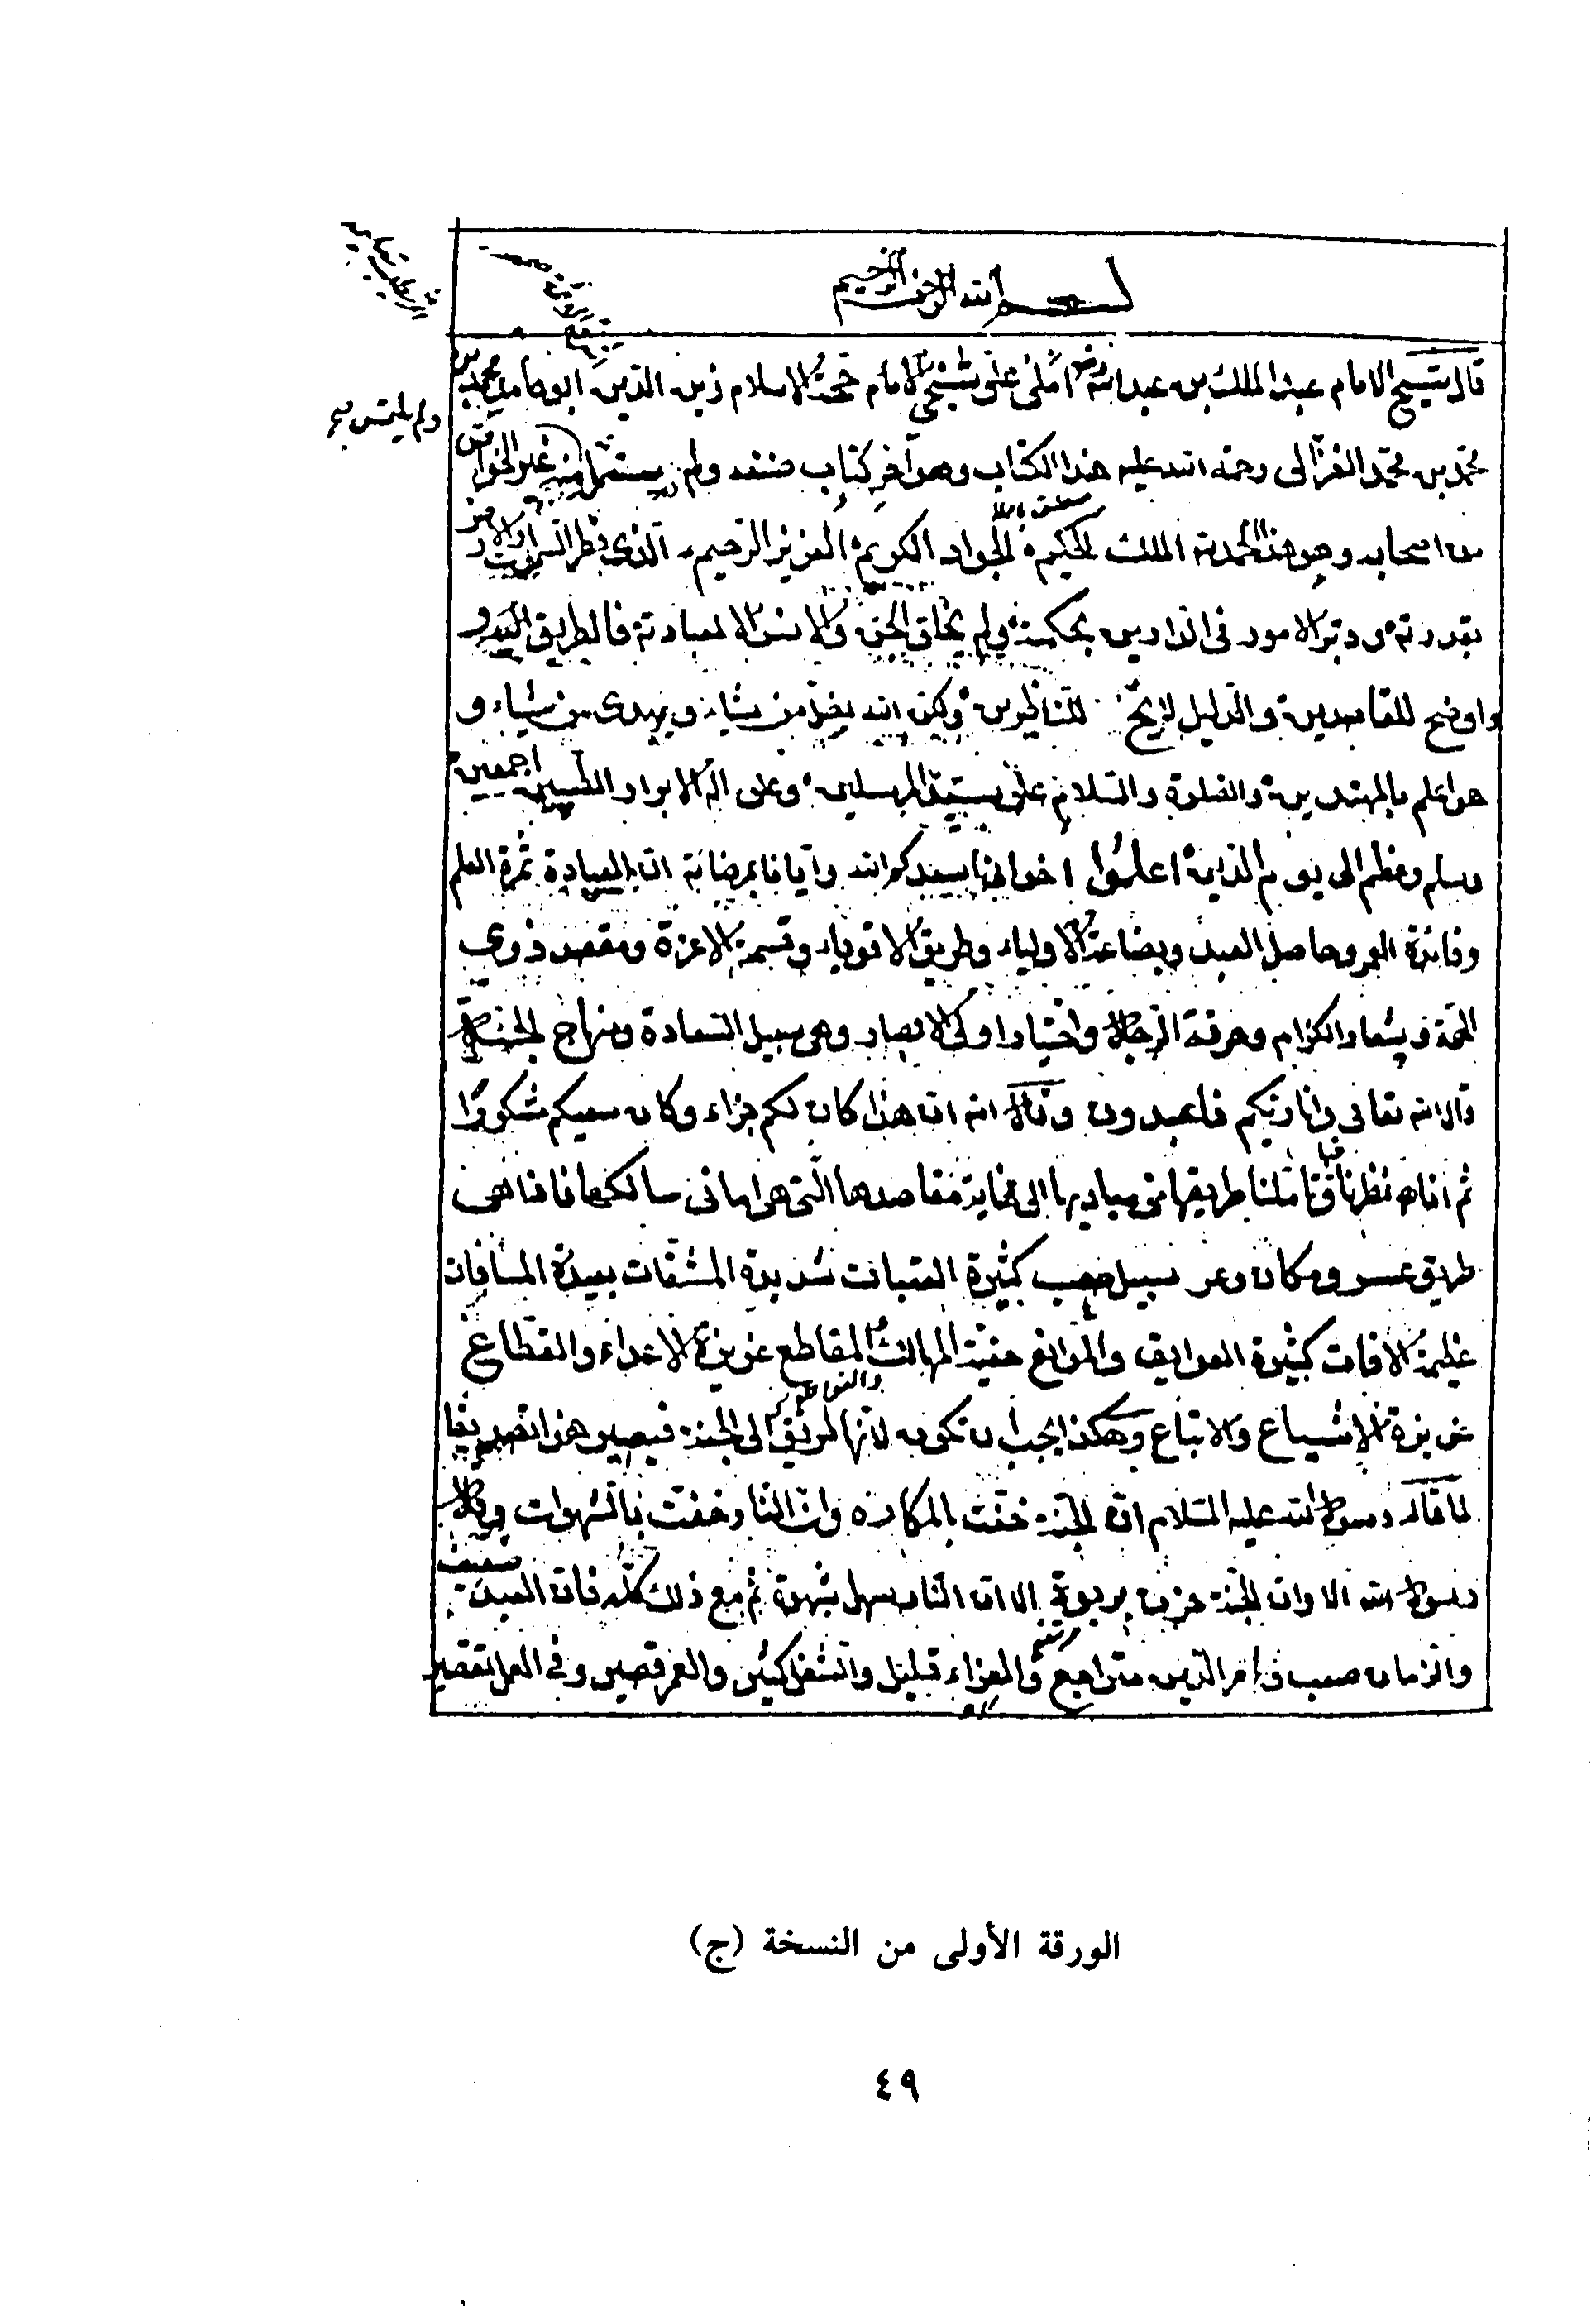 بسم الله الرحمن الرحيم
قال الشيخ الامام عبد الملك بن عبد الله املى على شيخى الامام حجة الاسلام زين الدين ابو حامد محمد بن
محمد بن محمد الغزالى رحمة الله عليه هذا الكتاب وهو آخر كتاب صنفه ولم يستمل منه غير الخواص
من اصحابه وهو هذا الحمد لله الملك الحكيم الجواد الكريم العزيز الرحيم الذى فطر السموات والارض
بقدرته ودبر الامور فى الدارين بحكمته ولم يخلق الجن والانس الا لعبادته فالطريق اليه
واوضح للقاصدين والدليل لايح للناظرين ولكن الله يضل من يشاء ويهدى من يشاء و
هو اعلم بالمهتدين والصلوة والسلام على سيد المرسلين وعلى اله الابرار الطيبين اجمعين
وسلم وعظم الى يوم الدين اعلموا اخوانى اسعدكم الله وايانا بمرضاته ان العبادة ثمرة العلم
وفائدة العمر وحاصل العبد وبضاعة الاولياء وطريق الاقوياء وقسمة الاعزة ومقصد ذوى
الهمة وشعار الكرام وحرفة الرجال واختيار اولى الابصار وهى سبيل السعادة ومنهاج الجنة
قال الله تعالى وانا ربكم فاعبدون وقال الله ان هذا كان لكم جزاء وكان سعيكم مشكورا
ثم انا نظرنا فيها وتأملنا طريقها من مباديها الى مقاصدها التى هى امانى سالكها فاذا هى
طريق عسر ومكان وعر سبيل صعب كثيرة العقبات شديدة المشقات بعيدة المسافات
عظيمة الافات كثيرة العوايق والموانع خفية المهالك والمقاطع غزيرة الاعداء والقطاع
عزيزة الاشياع والاتباع وهكذا يجب ان تكون لانها طريق الى الجنة فيصير هذا تصديقا
لما قال رسول الله عليه السلام ان الجنة حفت بالمكاره وان النار حفت بالشهوات وقال
رسول الله الا وان الجنة حزن بربوة الا ان النار سهل بشهوة ثم مع ذلك كله فان العبد ضعيف
والزمان صعب وامر الدين متراجع والفراغ قليل والشغل كثير والعمر قصير وفى العمل تقصير
الورقة الأولى من النسخة (ج)
٤٩